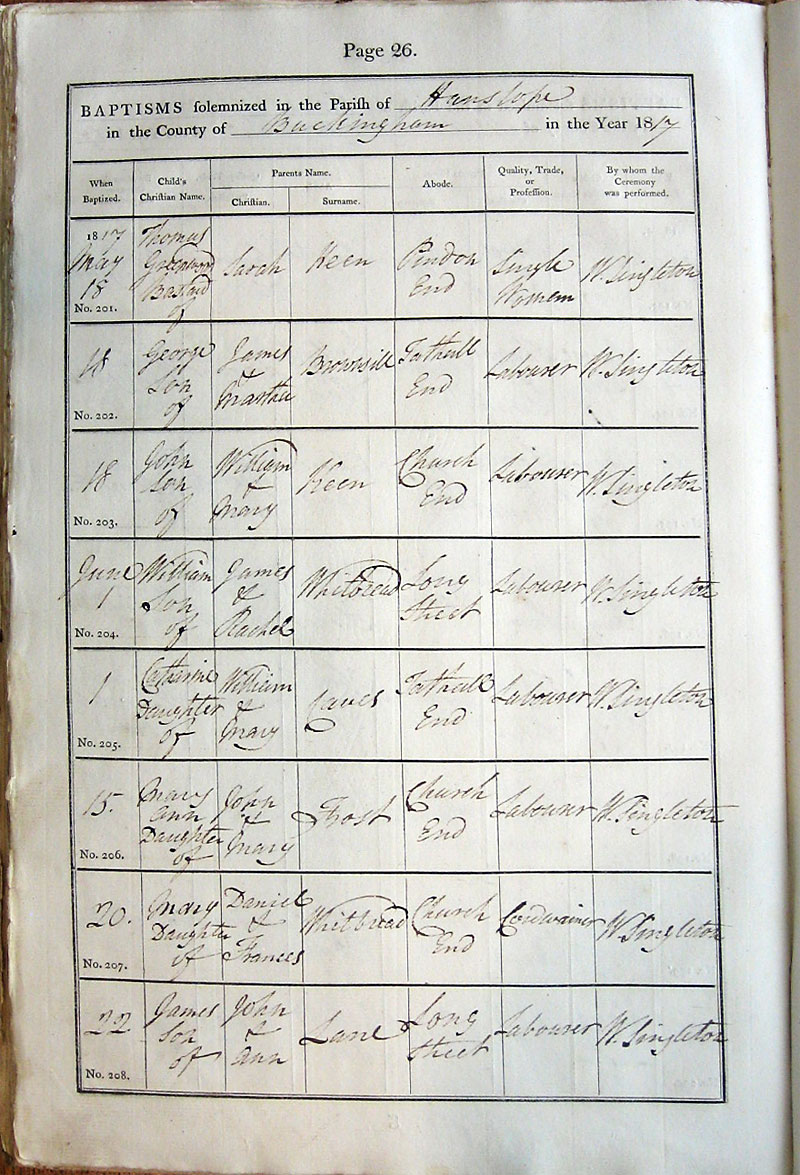 Page 26.
BAPTISMS solemnized in the Parish of Hanslope
in the County of Buckingham in the Year 1817
When Baptized.
Child's Christian Name.
Parents Name.
Christian.
Surname.
Abode.
Quality, Trade, or Profession.
By whom the Ceremony was performed.
1817 May 18 No. 201.
Thomas Greenwood Bastard of
Sarah
Keen
Pindon End
Single Womem
W. Singleton
18 No. 202.
George Son of
James & Martha
Brownsill
Tathall End
Labourer
W. Singleton
18 No. 203.
John Son of
William & Mary
Keen
Church End
Labourer
W. Singleton
June 1 No. 204.
William Son of
James & Rachel
Whitbread
Long Street
Labourer
W. Singleton
1 No. 205.
Catharine Daughter of
William & Mary
Tathall End
Labourer
W. Singleton
15. No. 206.
Mary Ann Daughter of
John & Mary
Frost
Church End
Labourer
W. Singleton
20. No. 207.
Mary Daughter of
Daniel & Frances
Whitbread
Church End
Cordwainer
W. Singleton
22 No. 208.
James Son of
John & Ann
Lane
Long Street
Labourer
W. Singleton